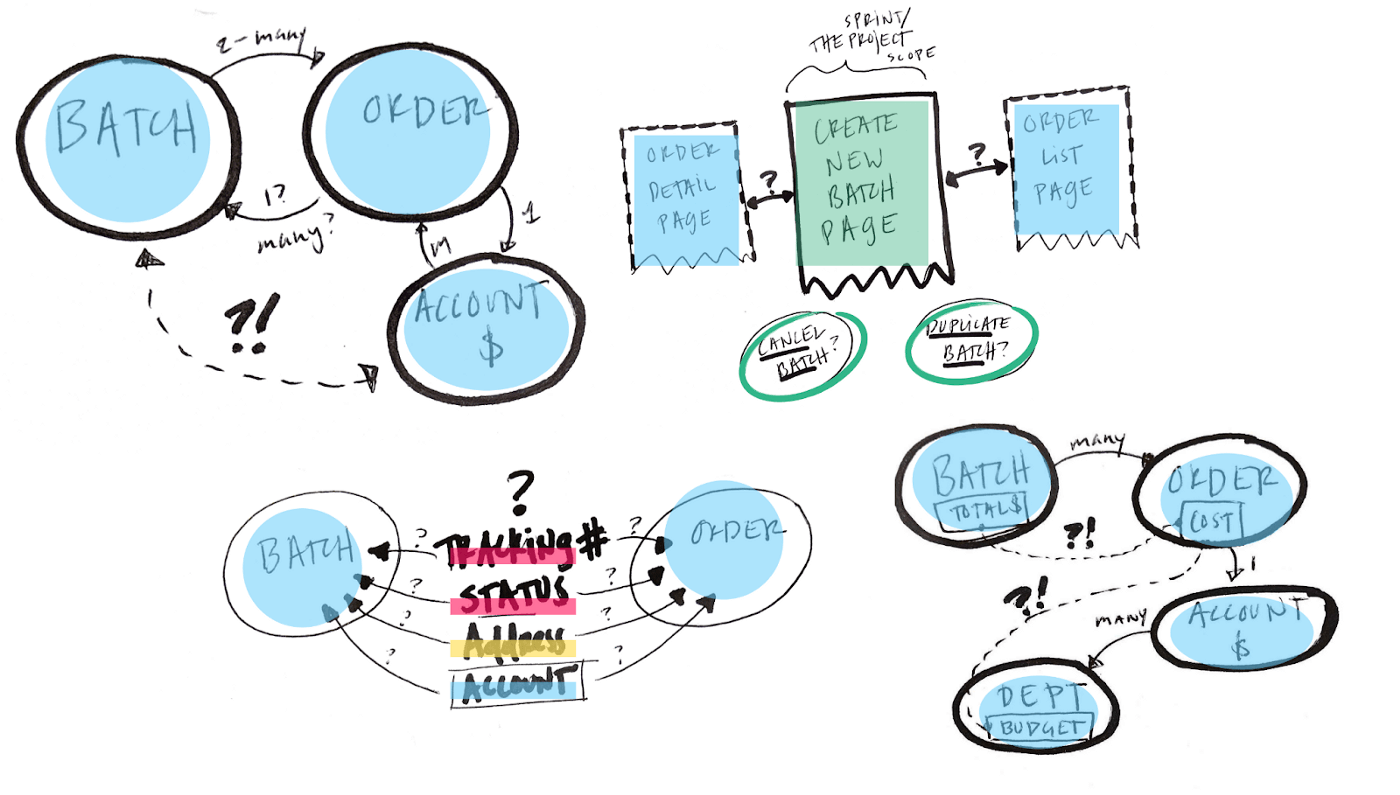 2-many
BATCH
ORDER
1?
many?
1
M
ACCOUNT
$
?!
SPRINT/
THE PROJECT
SCOPE
ORDER
DETAIL
PAGE
?
CREATE
NEW
BATCH
PAGE
?
ORDER
LIST
PAGE
CANCEL
BATCH?
DUPLICATE
BATCH?
?
BATCH
ORDER
? TRACKING# ?
? STATUS ?
? Address ?
? ACCOUNT ?
BATCH
TOTAL$
many
ORDER
COST
?!
1
?!
ACCOUNT
$
MANY
DEPT
BUDGET